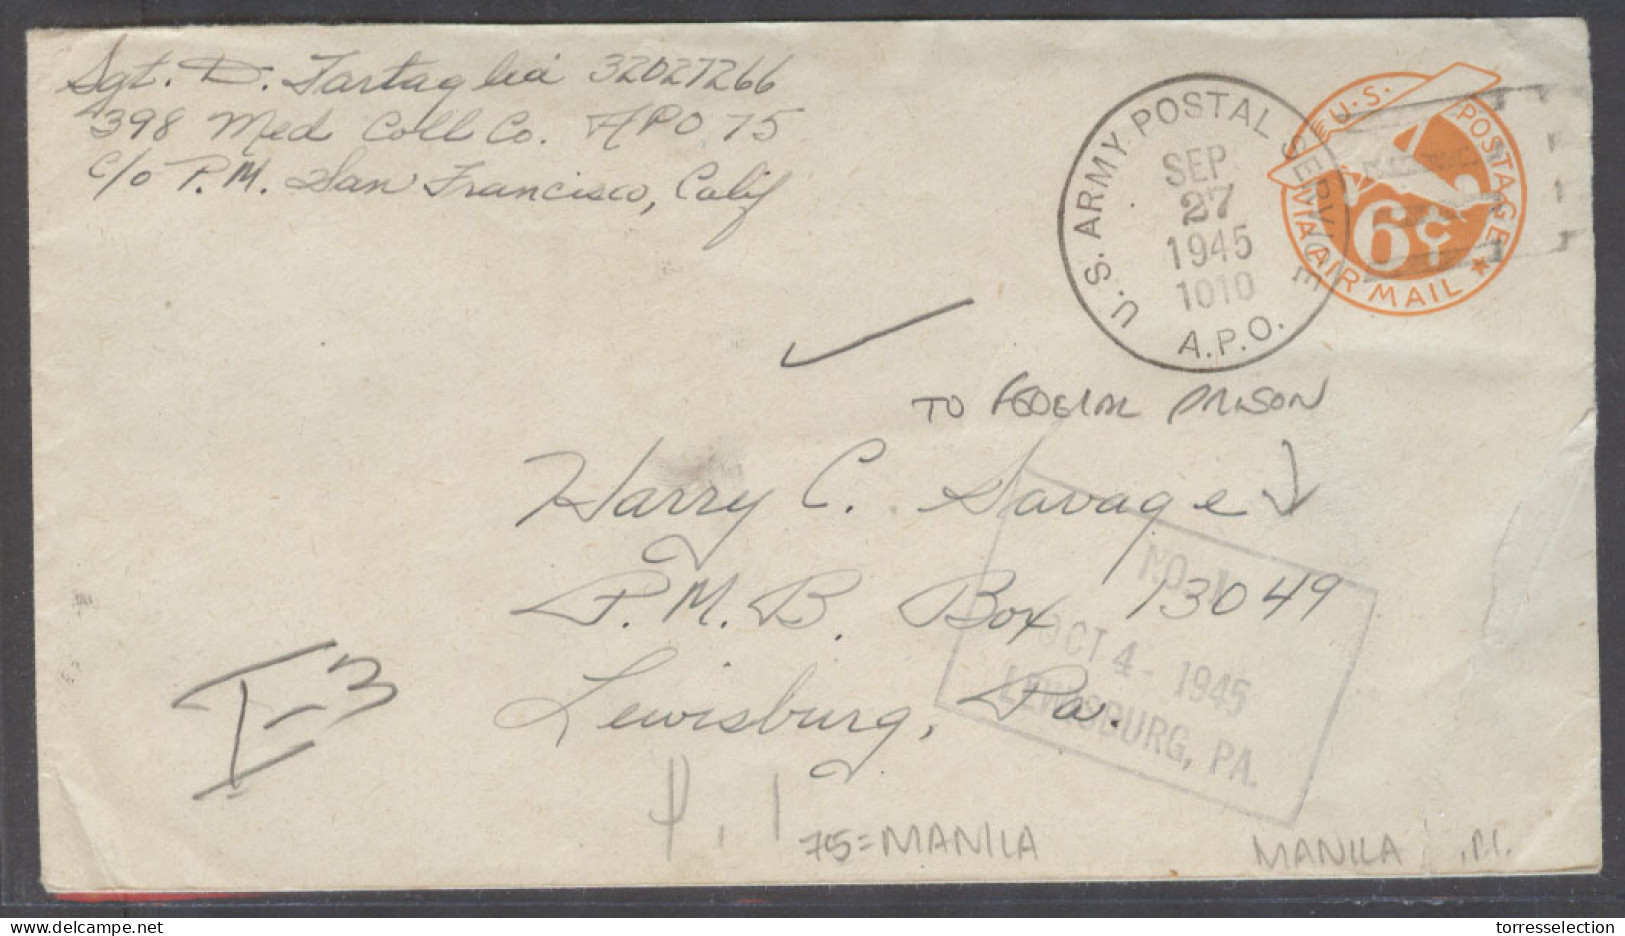 Sgt. D. Tartaglia 32027266
398 Med Coll Co. APO 75
c/o P.M. San Francisco, Calif
U.S. ARMY POSTAL SERVICE
SEP
27
1945
1010
A.P.O.
U.S. POSTAGE
6¢
VIA AIR MAIL
TO FEDERAL PRISON
Harry C. Savage
P.M.B. Box 13049
Lewisburg, Pa.
NO. 1
OCT 4 - 1945
LEWISBURG, PA.
I-3
75=MANILA
MANILA
torresselection